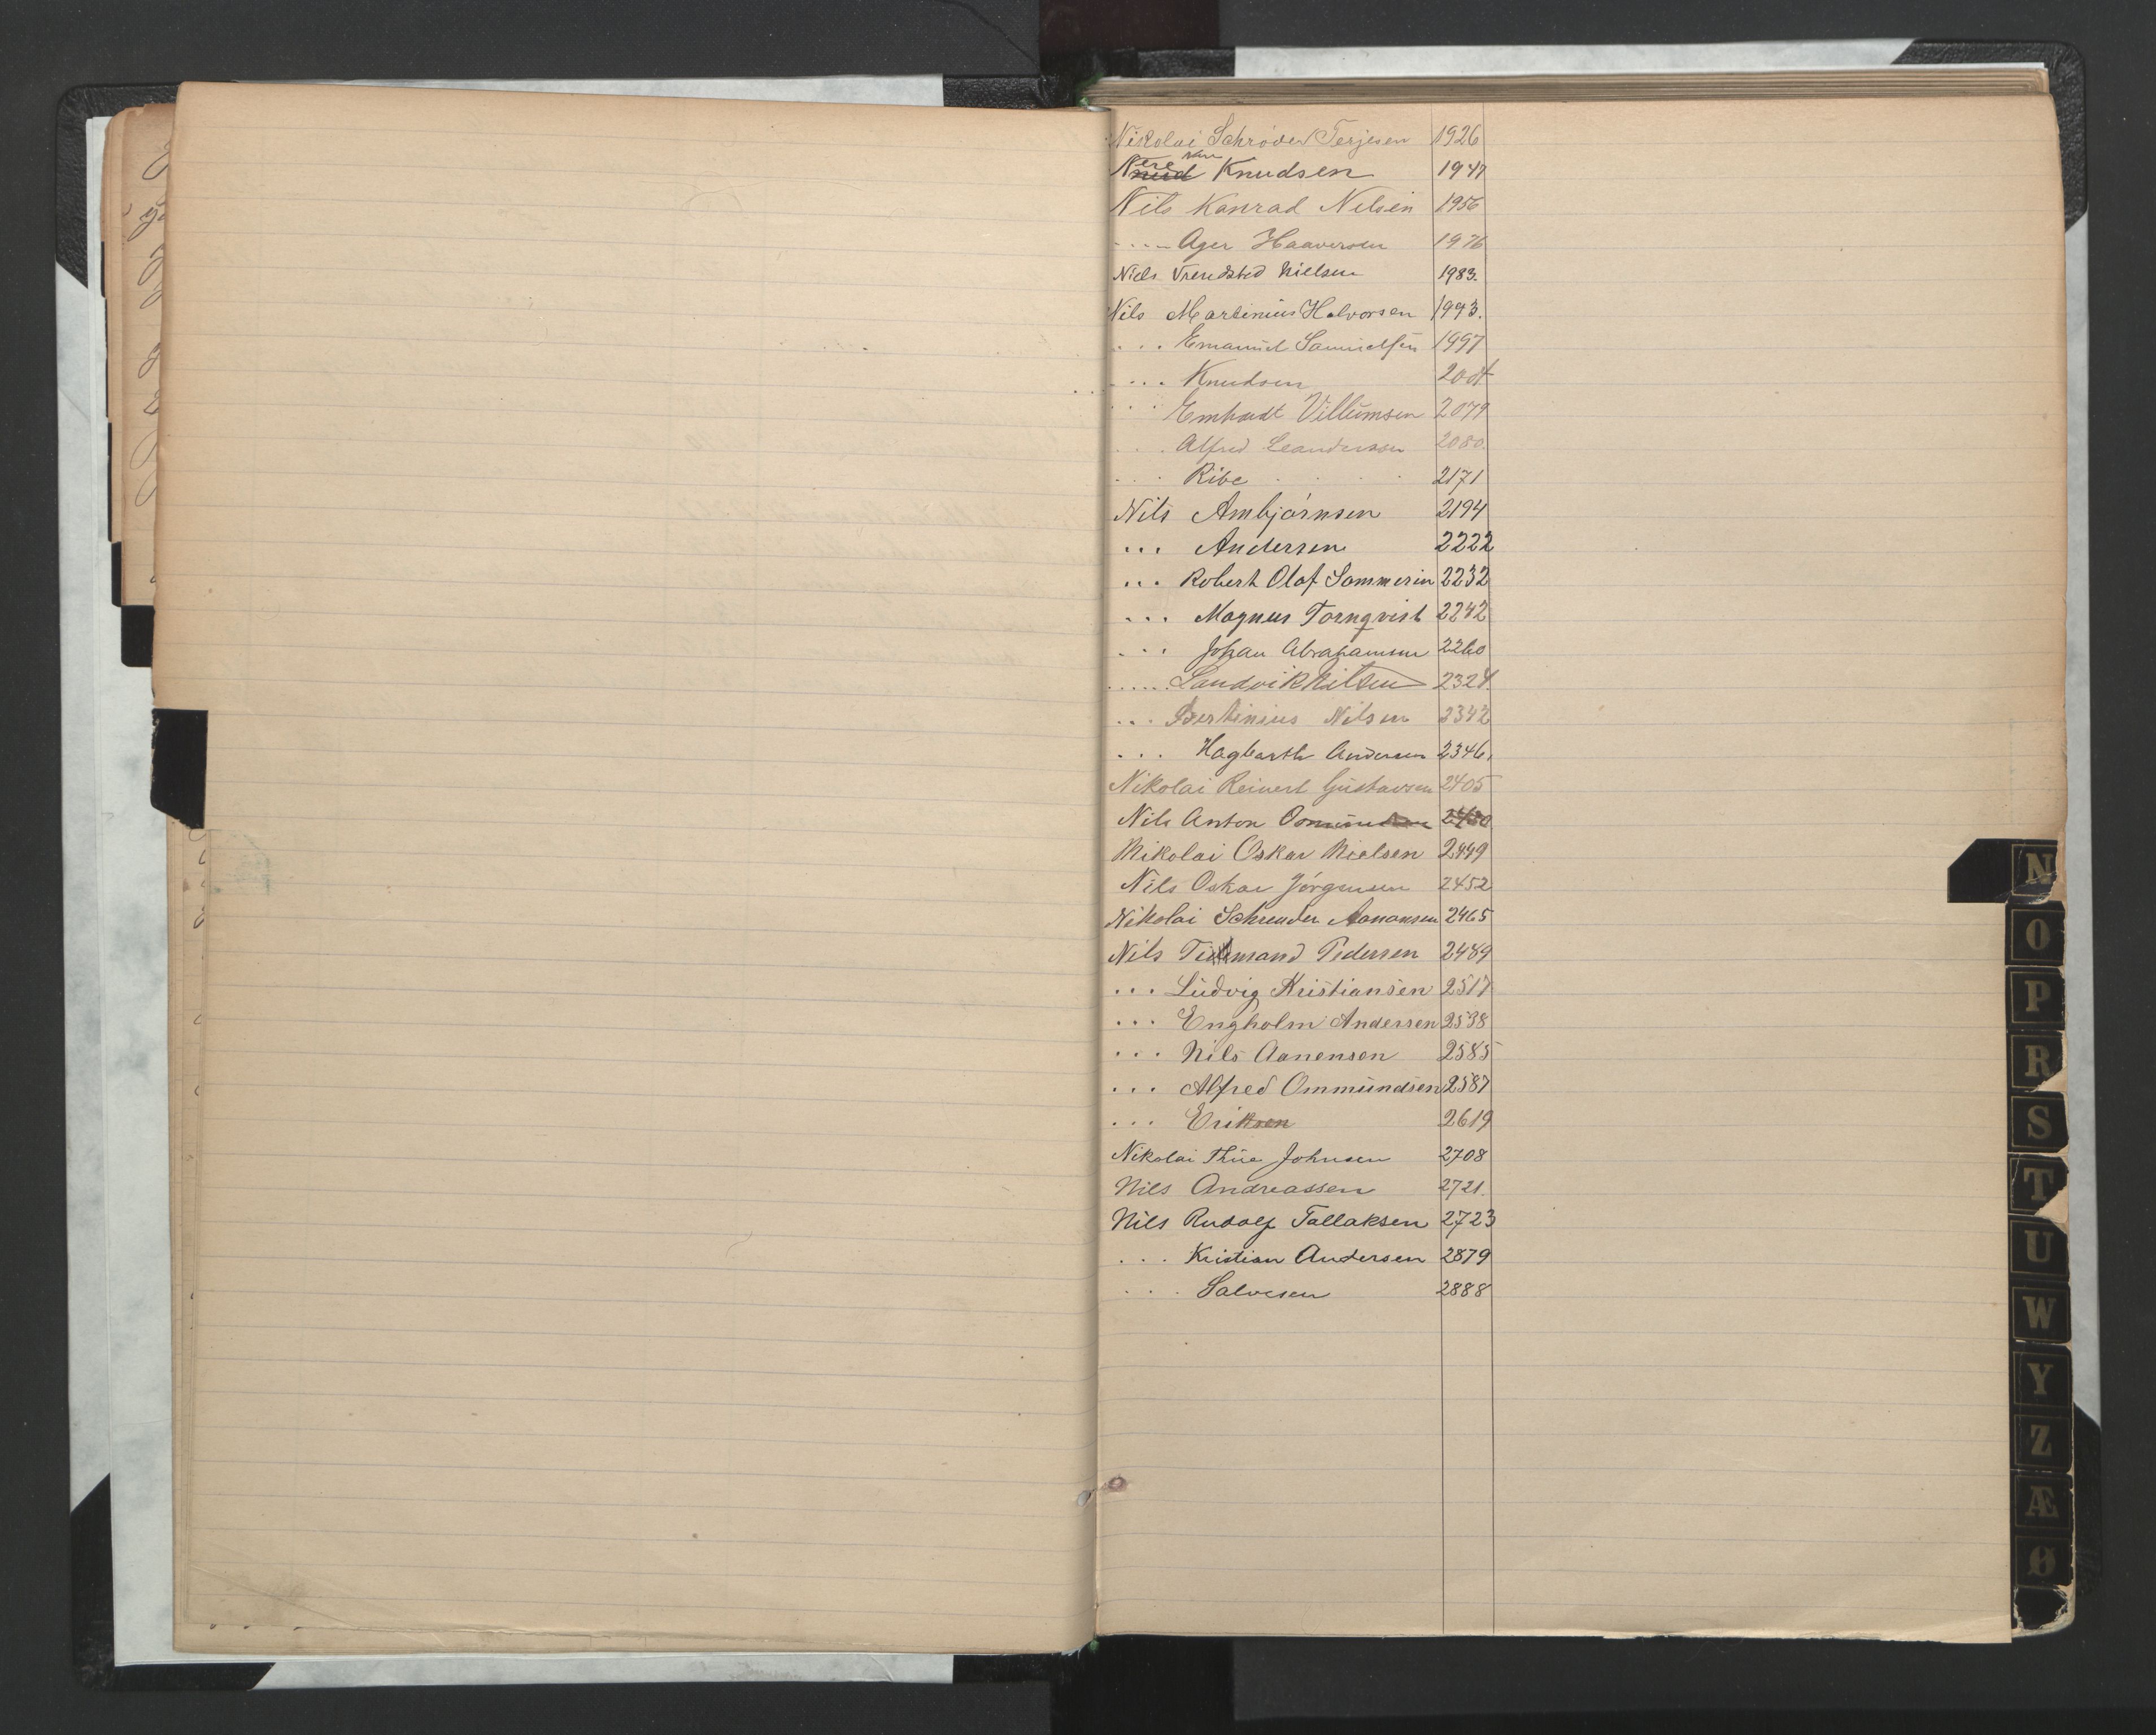 Nikolai Schrøder Terjesen 1926
Knudsen 1947
Nils Konrad Nilsen 1956
..... Ager Haaversen 1976
Niels Trendsted Nielsen 1983.
Nils Martinius Halvorsen 1993.
... Emanuel Samuelsen 1997
... Knudsen 2004
... Villumsen 2079
... Alfred Leanderssen 2080.
... Ribe 2171
Nils Ambjørnsen 2194
... Andersen 2222
... Robert Olaf Sommerin 2232
... Magnus Tornqvist 2242
... Johan Abrahamsen 2260
...... Landvik Nilsen 2324.
... Bertinius Nilsen 2342
... Hagbarth Andersen 2346.
Nikolai Reinert Gustavsen 2405
Nils Anton Osmundsen
Nikolai Oskar Nielsen 2449
Nils Oskar Jörgensen 2452
Nikolai Schreuder Aanonsen 2465
Nils Tidemand Pedersen 2489
... Ludvig Kristiansen 2517
... Engholm Andersen 2538
... Nils Aanensen 2585
... Alfred Ommundsen 2587
... Eriksen 2619
Nikolai Thue Johnsen 2708
Nils Andreassen 2721.
Nils Rudolf Tallaksen 2723
... Kristian Andersen 2879
... Salvesen 2888
N
O
P
R
S
T
U
W
Y
Z
Æ
Ø